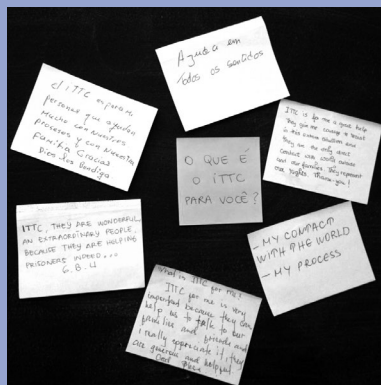 Ajuda em
todos os sentidos
personas que ayudan
mucho con nuestros
procesos y con nuestra
familia Gracias
Dios los bendiga
O QUE É
O ITTC
PARA VOCÊ?
ITTC is for me a great help
They give me courage to
in this
they are the only
contact with world outside
and our families. They represent
our rights. Thank-you!
ITTC, THEY ARE WONDERFUL
AN EXTRAORDINARY PEOPLE,
BECAUSE THEY ARE HELPING
PRISONERS INDEED...
G.B.U
- MY CONTACT
WITH THE WORLD
- MY PROCESS
What is ITTC for me?
ITTC for me is very
important because they can
help us to talk to our
families and friends and
I really appreciate it, they
are generous and helpful
God